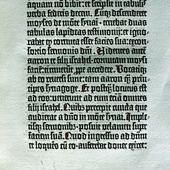 aquam nō bibit: et scripsit in tabulis
verba federis decem. Cumq; descenderet
moyses de mōte synai: tenebat duas
tabulas lapideas testimonii: et ignorabat
qꝫ cornuta esset facies sua ex consortio
sermonis dñi. Videntes autē
aaron et filii israhel cornutā moysi
faciem: timuerūt ꝓpe accedere. Vocatiq;
ab eo reversi sunt: tam aaron ꝗ̄ principes
synagoge. Et postq̄ locutus est
ad eos: venerunt ad eum etiā omnes
filii israhel. Quibus precepit cuncta que
audierat a dño in mōte synai. Impletisq;
sermonib;: posuit velamen super
faciem suam. Quod ingressus ad dñm
et loquens cū eo auferebat donec exiret: